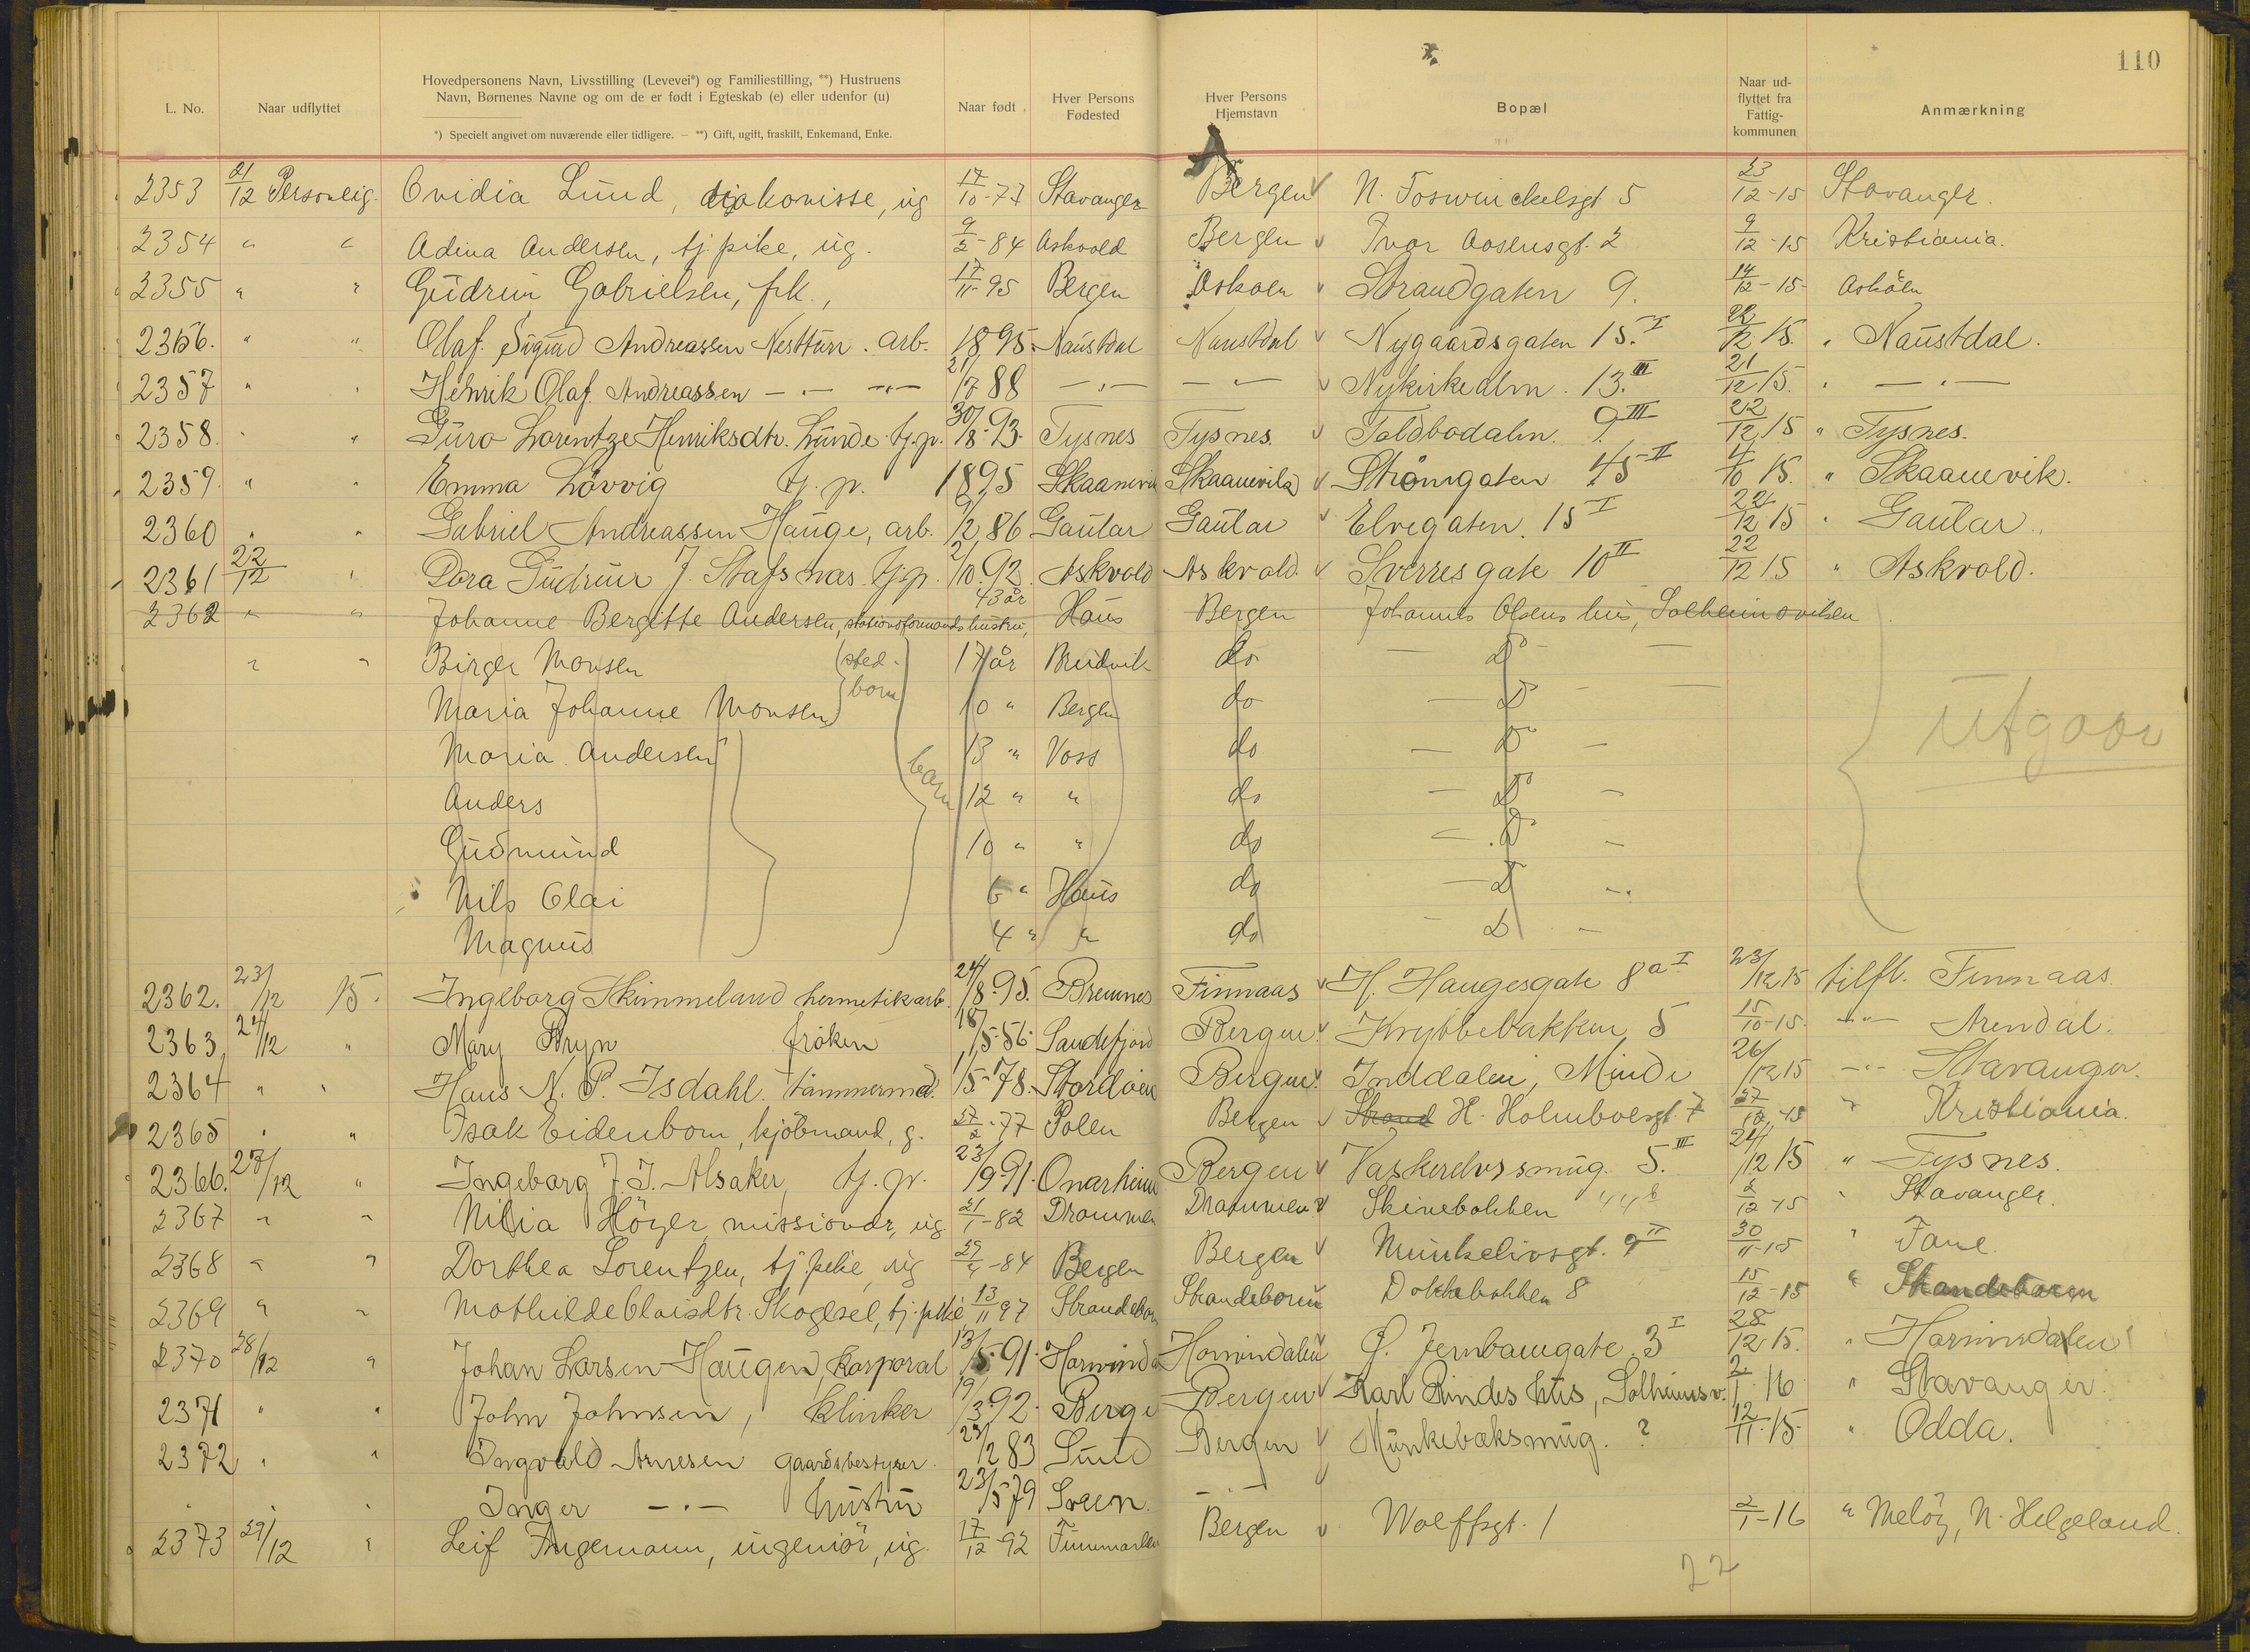 110
L. No.
Naar udflyttet
Hovedpersonens Navn, Livsstilling (Levevei*) og Familiestilling, **) Hustruens
Navn, Børnenes Navne og om de er født i Egteskab (e) eller udenfor (u)
*) Specielt angivet om nuværende eller tidligere. — **) Gift, ugift, fraskilt, Enkemand, Enke.
Naar født
Hver Persons
Fødested
Hver Persons
Hjemstavn
Bopæl
Naar ud-
flyttet fra
Fattig-
kommunen
Anmærkning
2353 21/12 Personlig. Ovidia Lund, diakonisse, ug 17/10-77 Stavanger Bergen N. Foswinckelsgt 5 23/12-15 Stavanger.
2354 " " Adina Andersen, tj. pike, ug. 9/2-84 Askvold Bergen Ivar Aasensgt. 2 9/12-15 Kristiania.
2355 " " Gudrun Gabrielsen, frk., 17/11-95 Bergen Askøen Strandgaten 9. 14/12-15- Askøen
2356. " " Olaf. Sigurd Andreassen Nesttun. arb. 1895. Naustdal Naustdal Nygaardsgaten 15. I 22/12 15. " Naustdal.
2357 " " Henrik Olaf. Andreassen — " — — " — 21/7 88 — " — — " — Nykirkealm. 13. III 21/12 15. " — " —
2358. " " Guro Lorentze Henriksdtr. Lunde tj. p. 30/8-93. Tysnes Tysnes. Toldbodalm. 9 III 22/12 15 " Tysnes.
2359. " " Emma Løvvig tj. p. 1895 Skaanevik Skaanevik Strømgaten 45 II 4/10 15. " Skaanevik.
2360 " " Gabriel Andreassen Hauge, arb. 6/12 86 Gaular Gaular Elvegaten. 15 I 22/12 15 " Gaular.
2361 22/12 " Dora Gudrun J. Stafsnas tj. p. 21/10.92. Askvold Askvold. Sverresgate 10 II 22/12 15 " Askvold.
2362 " " Johanne Bergitte Andersen, stationsformands hustru, 43 år Haus Bergen Johannes Olsens hus, Solheimsviken
" " Birger Monsen (sted- 17 år Bruvik do — D — Utgaar
Maria Johanne Monsen born 10 " Bergen do — D —
Maria Andersen 13 " Voss do — D —
barn
Anders 12 " " do — D —
Gudmund 10 " " do — D —
Nils Olai 6 " Haus do — D —
Magnus 4 " " do — D —
2362. 23/12 15. Ingeborg Skimmeland hermetikarb. 24/8-95. Bremnes Finnaas H. Haugesgate 8a I 23/12 15 tilfl. Finnaas
2363, 24/12 " Mary Bryn frøken 18/5-56. Sandefjord Bergen Krybbebakken 5 15/10-15. — " — Arendal.
2364 " " Hans N. P. Isdahl. tømmermd. 1/5-78. Stordøen Bergen Inddalen, Minde 26/12 15 — " — Stavanger.
2365 " " Isak Eidenbom, kjøbmand, g. 27/2-77 Polen Bergen Strand H. Holmboesgt. 7 27/12-15 " Kristiania.
2366. 27/12 " Ingeborg J. J. Alsaker, tj. p. 23/9 91. Onarheim Bergen Vaskerelvssmug. 5. III 24/12 15 " Tysnes.
2367 " " Nilia Høyer, missionær, ug. 21/1-82 Drammen Drammen Skivebakken 44 b 2/12-15 " Stavanger.
2368 " " Dorthea Lorentzen, tj pike, ug 29/4-84 Bergen Bergen Munkelivsgt. 9 II 30/11-15 " Fane
2369 " " Mathilde Olaisdtr. Skogsel, tj. pike 13/11 97 Strandebarm Strandebarm Dokkebakken 8 15/12-15 " Strandebarm
2370 28/12 " Johan Larsen Haugen, korporal 13/5.91. Hornindal Hornindalen Ø. Jernbanegate. 3 I 28/12 15. " Hornindalen
2371 " " John Johnsen, klinker 19/3.92. Berge Bergen Karl Rindes hus, Solheimsv. 2/1-16 " Stavanger.
2372 " " Ingvald Arnesen gaardsbestyrer. 23/12 83 Sund Bergen Munkebæksmug. ? 12/11.15. " Odda.
" " Inger — " — hustru 23/5 79 Sveen. — " —
2373 29/12 " Leif Ingemann, ingeniør, ug. 17/12-92 Finnmarken Bergen Wolffsgt. 1 2/1-16 " Meløy, N. Helgeland.
22